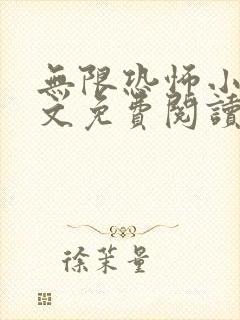 無限恐怖小
文免費閱讀
徐茉量